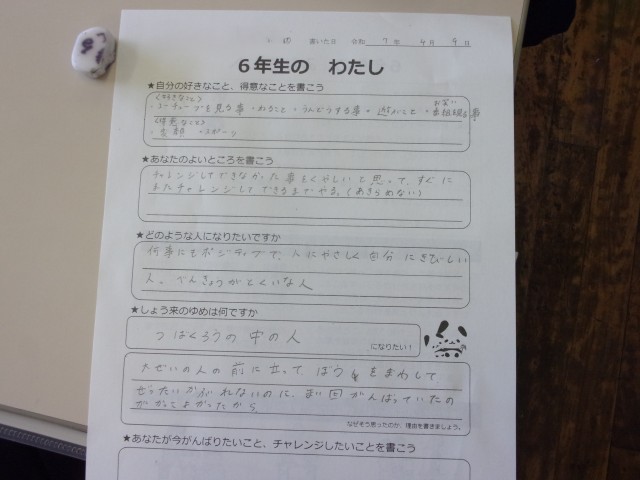 書いた日 令和 7年 4月 9日
6年生の わたし
★自分の好きなこと、得意なことを書こう
〈好きなこと〉
・ユーチューブを見る事 ・ねること ・うんどうする事 ・遊ぶこと ・お笑い番組観る事
〈得意なこと〉
・スポーツ
★あなたのよいところを書こう
チャレンジしてできなかった事をくやしいと思って、すぐに
またチャレンジしてできるまでやる。(あきらめない)
★どのような人になりたいですか
何事にもポジティブで、人にやさしく自分にきびしい
人。べんきょうがとくいな人
★しょう来のゆめは何ですか
つばくろうの中の人
になりたい!
大ぜいの人の前に立って、ぼうしをまわして
ぜったいかぶれないのに、まい回がんばっていたの
がかっこよかったから
なぜそう思ったのか、理由を書きましょう。
★あなたが今がんばりたいこと、チャレンジしたいことを書こう